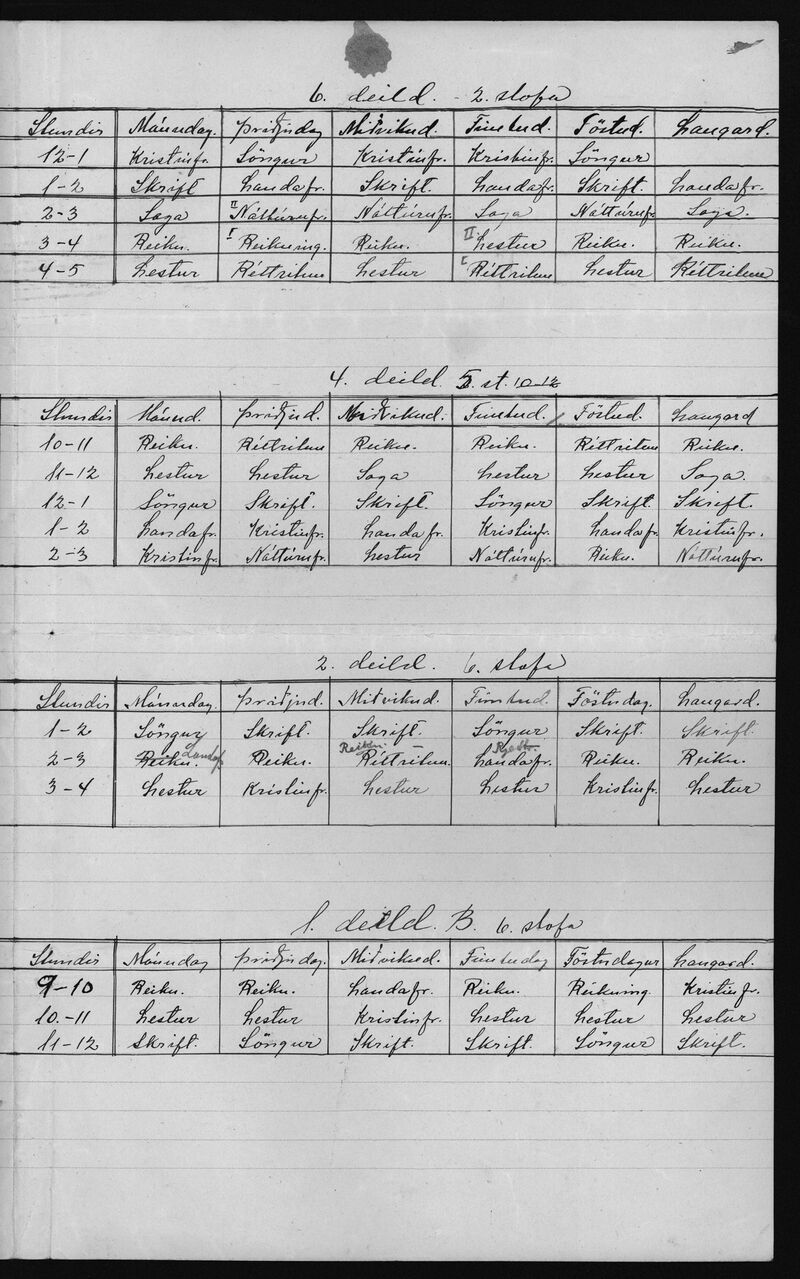 6. deild. - 2. stofa
Stundir Mánudag. þriðjudag Miðvikud. Fimtud. Föstud. Laugard.
12-1 Kristinfr. Söngur Kristinfr. Kristinfr. Söngur
1-2 Skrift Landafr. Skrift. Landafr. Skrift. Landafr.
2-3 Saga II Náttúrufr. Náttúrufr. Saga Náttúrufr. Saga.
3-4 Reikn. I Reikning. Reikn. II Lestur Reikn. Reikn.
4-5 Lestur Réttritun Lestur I Réttritun Lestur Réttritun
4. deild. 5. st. 10-12
Stundir Mánud. þriðjud. Miðvikud. Fimtud. Föstud. Laugard
10-11 Reikn. Réttritun Reikn. Reikn. Réttritun Reikn.
11-12 Lestur Lestur Saga Lestur Lestur Saga.
12-1 Söngur Skrift. Skrift. Söngur Skrift. Skrift.
1-2 Landafr. Kristinfr. Landafr. Kristinfr. Landafr. Kristinfr.
2-3 Kristinfr. Náttúrufr. Lestur Náttúrufr. Reikn. Náttúrufr.
2. deild. 6. stofa
Stundir Mánudag. þriðjud. Miðvikud. Fimtud. Föstudag. Laugard.
1-2 Söngur Skrift. Skrift. Söngur Skrift. Skrift.
2-3 Reikn. Landaf Reikn. Reikn. Réttritun. Landafr. Reikn. Reikn.
3-4 Lestur Kristinfr. Lestur Lestur Kristinfr. Lestur
1. deild. B. 6. stofa
Stundir Mánudag þriðjudag. Miðvikud. Fimtudag Föstudagur Laugard.
9-10 Reikn. Reikn. Landafr. Reikn. Reikning. Kristinfr.
10.-11 Lestur Lestur Kristinfr. Lestur Lestur Lestur
11-12 Skrift. Söngur Skrift. Skrift. Söngur Skrift.